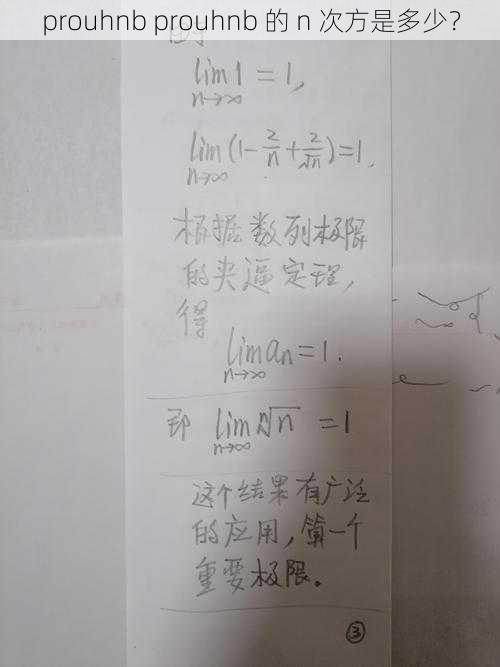 prouhnb prouhnb 的 n 次方是多少?
lim 1 = 1,
n→∞
lim (1 - 2/n + 2/√n) = 1.
n→∞
根据数列极限
的夹逼定理,
得
lim aₙ = 1.
n→∞
即 lim ⁿ√n = 1
n→∞
这个结果有广泛
的应用,算一个
重要极限。
③